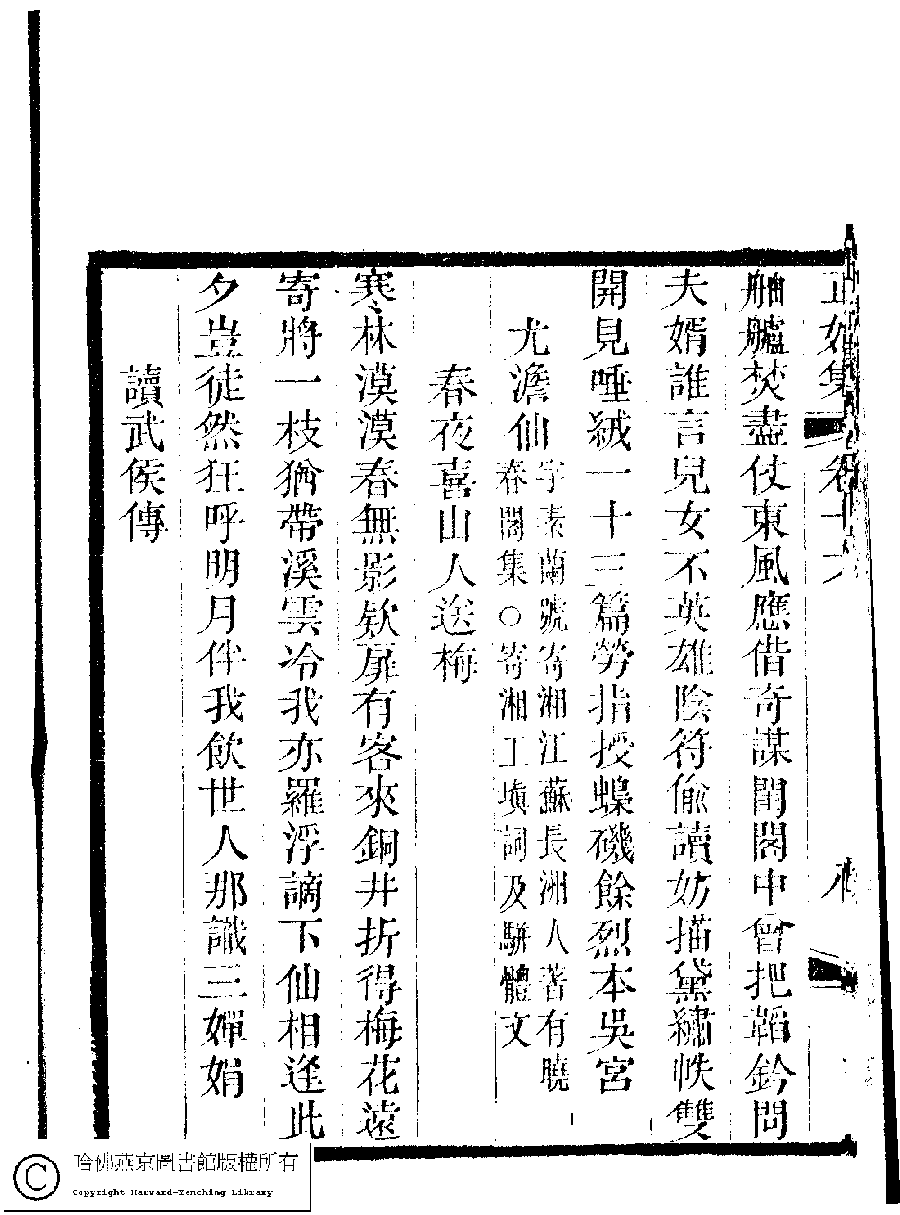 正始集 卷十六
舳艫焚盡仗東風應借奇謀閨閤中曾把韜鈐問
夫婿誰言兒女不英雄陰符偷讀妨描黛繡帙雙
開見唾絨一十三篇勞指授蟂磯餘烈本吳宮
尤澹仙字素蘭號寄湘江蘇長洲人著有曉
春閣集○寄湘工填詞及駢體文
春夜喜山人送梅
寒林漠漠春無影欸扉有客來銅井折得梅花遠
寄將一枝猶帶溪雲冷我亦羅浮謫下仙相逢此
夕豈徒然狂呼明月伴我飲世人那識三嬋娟
讀武侯傳
哈佛燕京圖書館版權所有
Copyright Harvard-Yenching Library